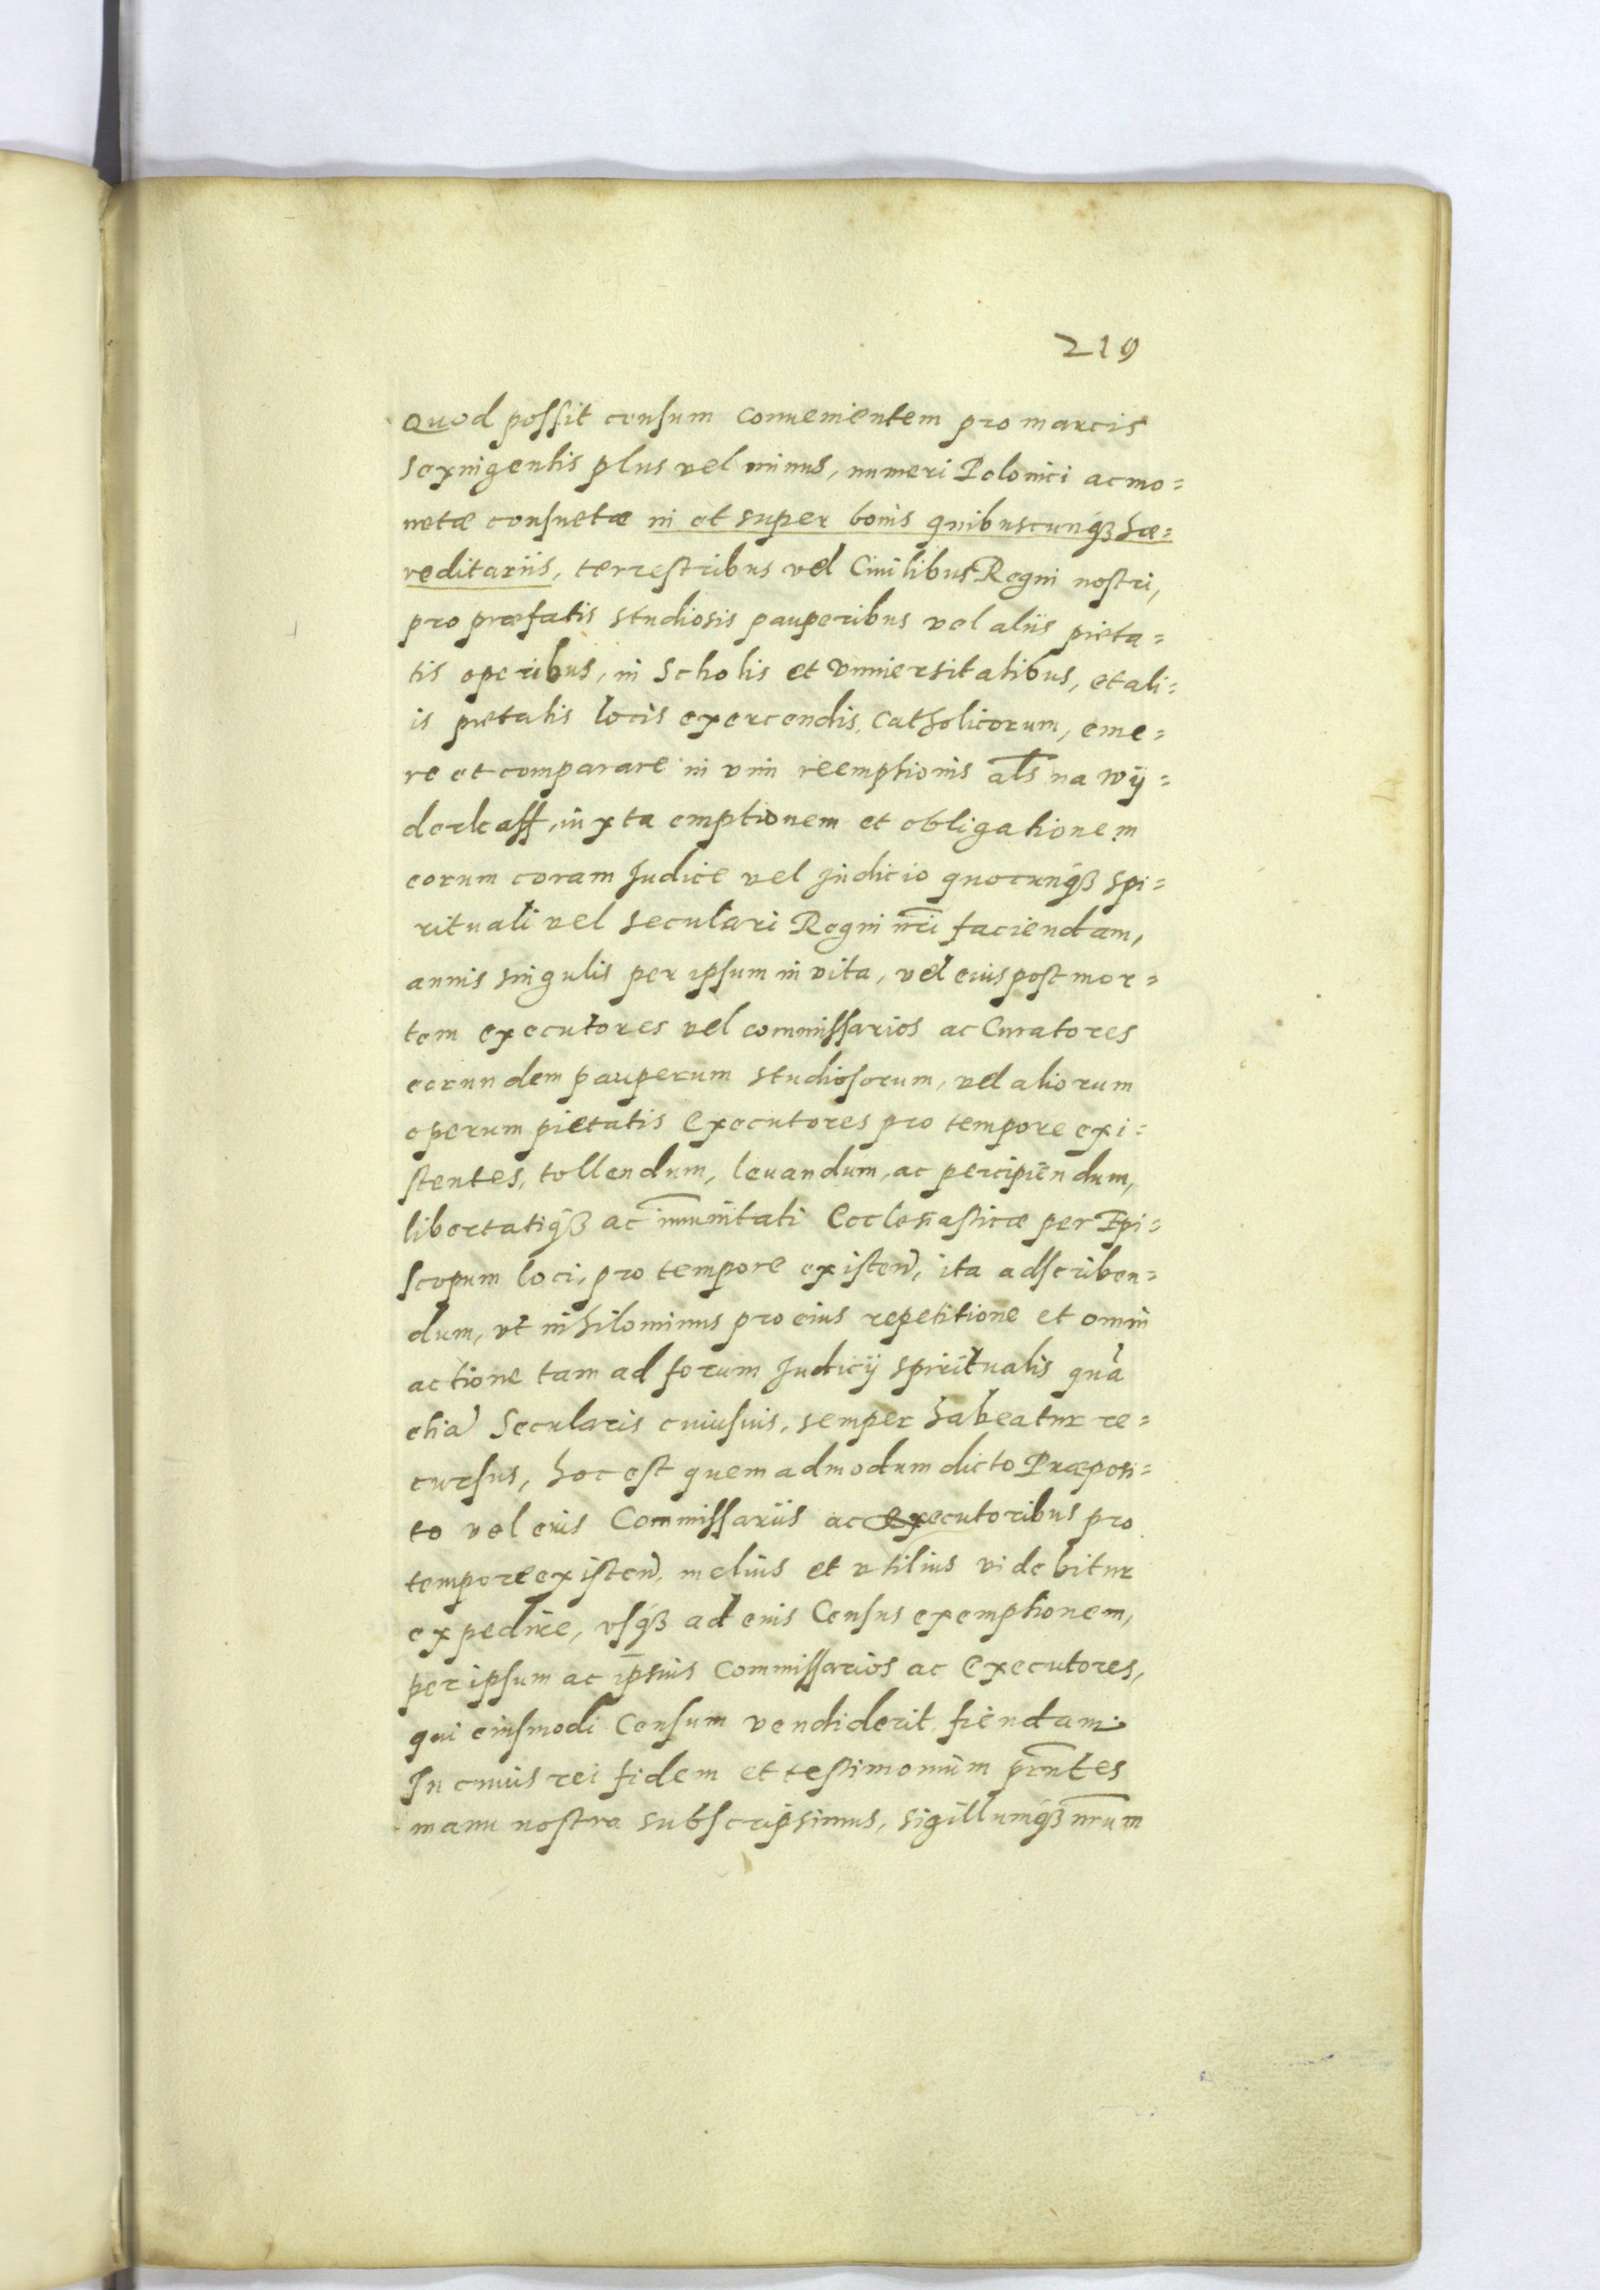 219
Quod possit censum conuenientem pro marcis
sexingentis plus vel minus, numeri Polonici ac mo=
netæ consuetæ in et super bonis quibuscunq́ꝫ hæ=
reditariis, terrestribus vel Ciuilibus Regni nostri,
pro præfatis studiosis pauperibus vel aliis pieta=
tis operibus, in Scholis et Vniuersitatibus, et ali=
is pietatis locis exercendis, Catholicorum, eme=
re et comparare in vim reemptionis al̅s na wÿ=
derkaff, iuxta emptionem et obligationem
eorum coram Judice vel Judicio quocunq́ꝫ spi=
rituali vel seculari Regni nr̅i faciendam,
annis singulis per ipsum in vita, vel eius post mor=
tem executores vel commissarios ac Curatores
eorundem pauperum studiosorum, vel aliorum
operum pietatis executores pro tempore exi=
stentes, tollendum, leuandum, ac percipiendum,
libertatiq́ꝫ ac im̅unitati Ecclesiasticæ per Epi=
scopum loci, pro tempore existen̅, ita adscriben=
dum, vt nihilominus pro eius repetitione et omni
actione tam ad forum Judicÿ spiritualis qua̅
etia̅ Secularis cuiusuis, semper habeatur re=
cursus, hoc est quemadmodum dicto Præposi=
to vel eius Commissariis ac executoribus pro
tempore existen̅, melius et vtilius videbitur
expedire, vsq́ꝫ ad eius Census exemptionem,
per ipsum ac ip̅sius Commissarios ac executores,
qui eiusmodi Censum vendiderit, fiendam.
In cuius rei fidem et testimonium pn̅tes
manu nostra subscripsimus, sigillumq́ꝫ nr̅um